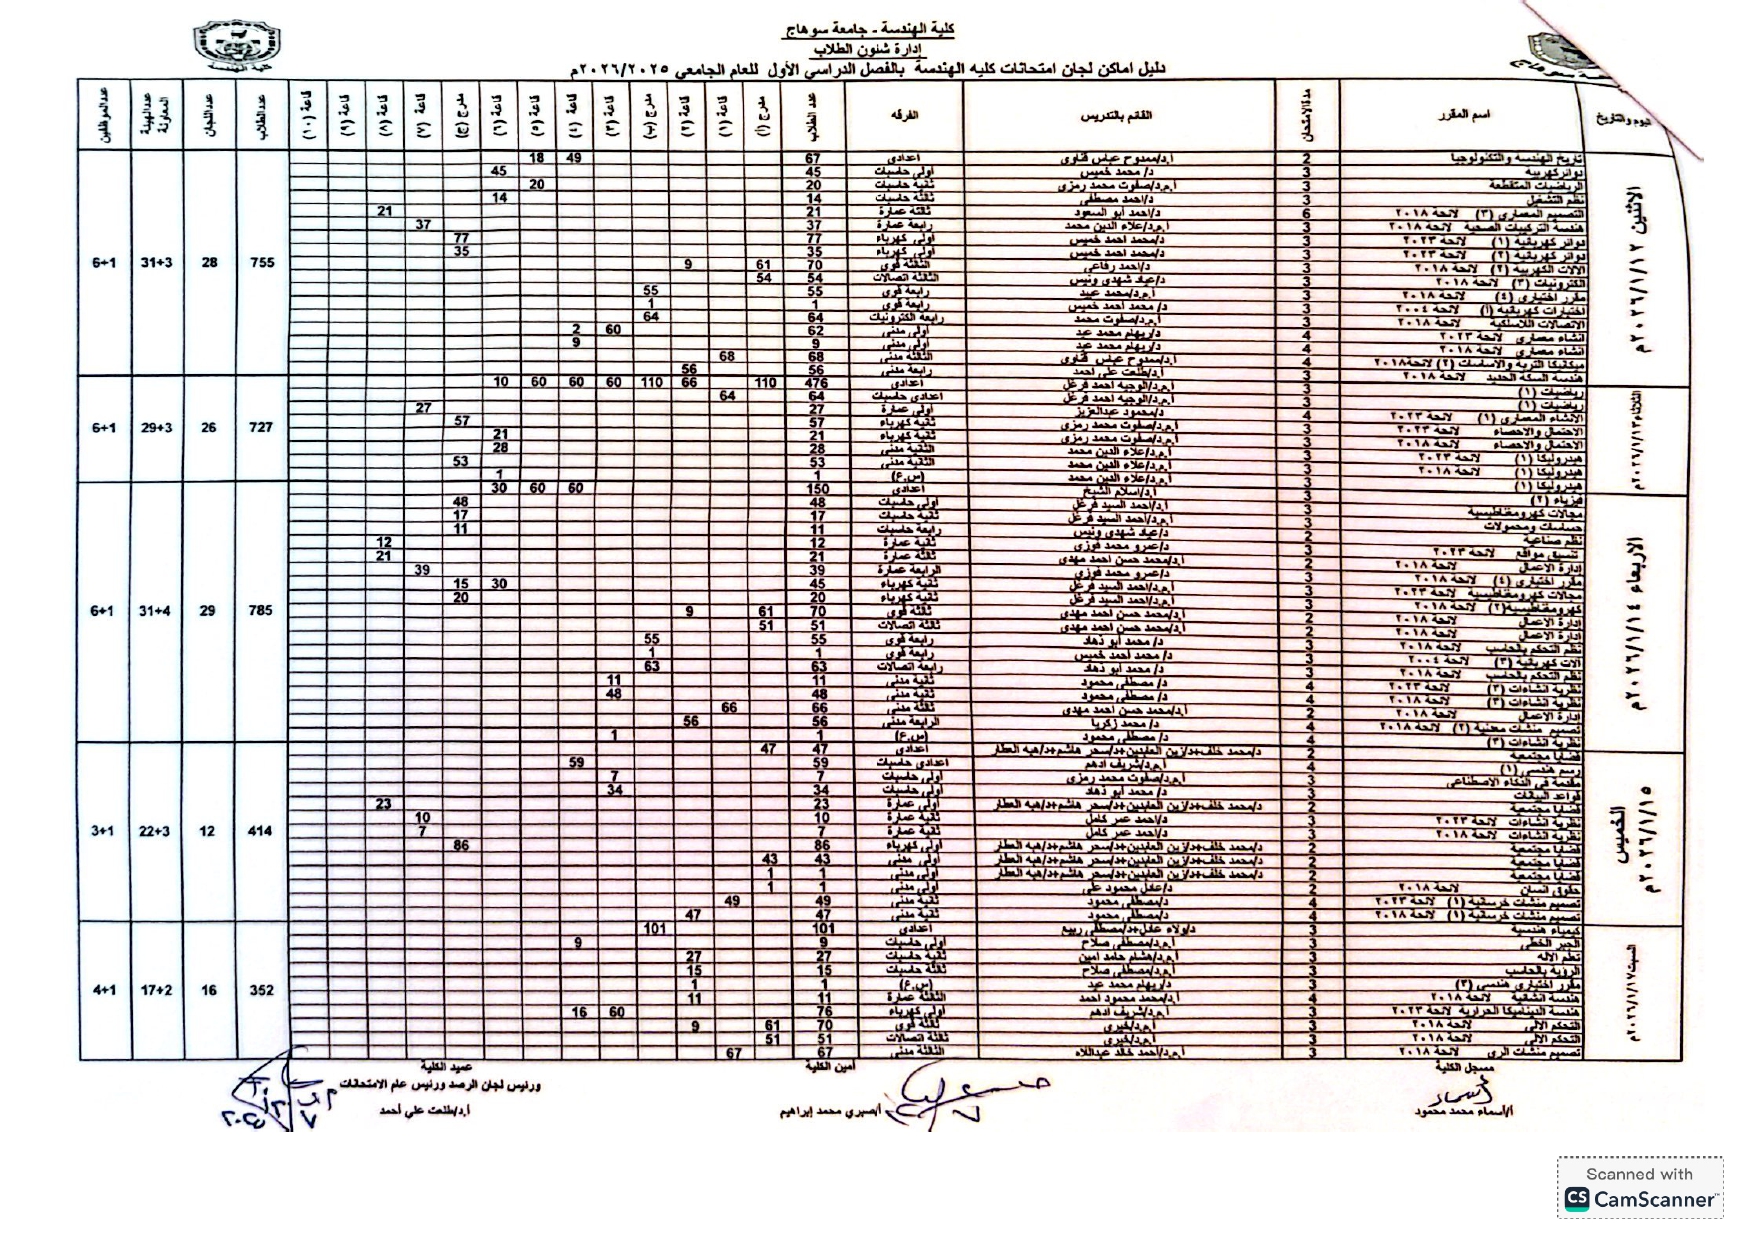 كلية الهندسة - جامعة سوهاج
إدارة شئون الطلاب
دليل اماكن لجان امتحانات كليه الهندسة بالفصل الدراسي الأول للعام الجامعي ٢٠٢٦/٢٠٢٥م
كلية الهندسة
اليوم والتاريخ اسم المقرر مدة الامتحان القائم بالتدريس الفرقه عدد الطلاب مدرج (أ) قاعة (١) قاعة (٢) مدرج (ب) قاعة (٣) قاعة (٤) قاعة (٥) قاعة (٦) مدرج (ج) قاعة (٧) قاعة (٨) قاعة (٩) قاعة (١٠) عدد الطلاب عدد اللجان عدد الهيئة المعاونة عدد الموظفين
الاثنين ٢٠٢٦/١/١٢م 755 28 31+3 6+1
تاريخ الهندسة والتكنولوجيا 2 أ.د/ممدوح عباس قناوى اعدادى 67 49 18
دوائر كهربية 3 د/ محمد خميس أولى حاسبات 45 45
الرياضيات المتقطعة 3 أ.م.د/صفوت محمد رمزى ثانية حاسبات 20 20
نظم التشغيل 3 د/احمد مصطفى ثالثة حاسبات 14 14
التصميم المعمارى (٣) لائحة ٢٠١٨ 6 د/احمد أبو السعود ثالثة عمارة 21 21
هندسة التركيبات الصحية لائحة ٢٠١٨ 3 أ.م.د/علاء الدين محمد رابعة عمارة 37 37
دوائر كهربائية (١) لائحة ٢٠٢٣ 3 د/محمد احمد خميس أولى كهرباء 77 77
دوائر كهربائية (٢) لائحة ٢٠٢٣ 3 د/محمد احمد خميس أولى كهرباء 35 35
الالات الكهربية (٢) لائحة ٢٠١٨ 3 د/احمد رفاعى الثالثة قوى 70 61 9
الكترونيات (٣) لائحة ٢٠١٨ 3 د/عياد شهدى ونيس الثالثة اتصالات 54 54
مقرر اختيارى (٤) لائحة ٢٠١٨ 3 أ.م.د/محمد عبيد رابعة قوى 55 55
اختبارات كهربائية (أ) لائحة ٢٠٠٤ 3 د/ محمد احمد خميس رابعة قوى 1 1
الاتصالات اللاسلكية لائحة ٢٠١٨ 3 أ.م.د/صفوت محمد رابعة الكترونيات 64 64
انشاء معمارى لائحة ٢٠٢٣ 4 د/ريهام محمد عبد أولى مدنى 62 60 2
انشاء معمارى لائحة ٢٠١٨ 4 د/ريهام محمد عبد أولى مدنى 9 9
ميكانيكا التربة والاساسات (٢) لائحة٢٠١٨ 4 أ.د/ممدوح عباس قناوى الثالثة مدنى 68 68
هندسة السكة الحديد لائحة ٢٠١٨ 3 أ.د/طلعت على احمد رابعة مدنى 56 56
الثلاثاء٢٠٢٦/١/١٣م 727 26 29+3 6+1
رياضيات (١) 3 أ.م.د/الوجيه احمد فرغل اعدادى 476 110 66 110 60 60 60 10
رياضيات (١) 3 أ.م.د/الوجيه احمد فرغل اعدادى حاسبات 64 64
الانشاء المعمارى (١) لائحة ٢٠٢٣ 4 د/محمود عبدالعزيز أولى عمارة 27 27
الاحتمال والاحصاء لائحة ٢٠٢٣ 3 أ.م.د/صفوت محمد رمزى ثانية كهرباء 57 57
الاحتمال والاحصاء لائحة ٢٠١٨ 3 أ.م.د/صفوت محمد رمزى ثانية كهرباء 21 21
هيدروليكا (١) لائحة ٢٠٢٣ 3 أ.م.د/علاء الدين محمد الثانية مدنى 28 28
هيدروليكا (١) لائحة ٢٠١٨ 3 أ.م.د/علاء الدين محمد الثانية مدنى 53 53
هيدروليكا (١) 3 أ.م.د/علاء الدين محمد (س.ع) 1 1
الاربعاء ٢٠٢٦/١/١٤م 785 29 31+4 6+1
فيزياء (٢) 3 أ.د/اسلام الشيخ اعدادى 150 60 60 30
مجالات كهرومغناطيسية 3 أ.م.د/احمد السيد فرغل أولى حاسبات 48 48
حساسات ومحمولات 3 أ.م.د/احمد السيد فرغل ثانية حاسبات 17 17
نظم صناعية 2 د/عياد شهدى ونيس رابعة حاسبات 11 11
تنسيق مواقع لائحة ٢٠٢٣ 3 د/عمرو محمد فوزى ثانية عمارة 12 12
إدارة الاعمال لائحة ٢٠١٨ 2 أ.د/محمد حسن احمد مهدى ثالثة عمارة 21 21
مقرر اختيارى (٤) لائحة ٢٠١٨ 3 د/عمرو محمد فوزى الرابعة عمارة 39 39
مجالات كهرومغناطيسية لائحة ٢٠٢٣ 3 أ.م.د/احمد السيد فرغل ثانية كهرباء 45 30 15
كهرومغناطيسية(٢) لائحة ٢٠١٨ 3 أ.م.د/احمد السيد فرغل ثانية كهرباء 20 20
إدارة الاعمال لائحة ٢٠١٨ 2 أ.د/محمد حسن احمد مهدى ثالثة قوى 70 61 9
إدارة الاعمال لائحة ٢٠١٨ 2 أ.د/محمد حسن احمد مهدى ثالثة اتصالات 51 51
نظم التحكم بالحاسب لائحة ٢٠١٨ 3 د/ محمد أبو ذهاد رابعة قوى 55 55
آلات كهربائية (٣) لائحة ٢٠٠٤ 3 د/ محمد احمد خميس رابعة قوى 1 1
نظم التحكم بالحاسب لائحة ٢٠١٨ 3 د/ محمد أبو ذهاد رابعة اتصالات 63 63
نظرية انشاءات (٣) لائحة ٢٠٢٣ 4 د/ مصطفى محمود ثانية مدنى 11 11
نظرية انشاءات (٣) لائحة ٢٠١٨ 4 د/ مصطفى محمود ثانية مدنى 48 48
إدارة الاعمال لائحة ٢٠١٨ 2 أ.د/محمد حسن احمد مهدى ثالثة مدنى 66 66
تصميم منشآت معدنية (٢) لائحة ٢٠١٨ 4 د/ محمد زكريا الرابعة مدنى 56 56
نظرية انشاءات (٣) 4 د/ مصطفى محمود (س.ع) 1 1
الخميس ٢٠٢٦/١/١٥م 414 12 22+3 3+1
قضايا مجتمعية 2 د/محمد خلف+د/زين العابدين+د/سحر هاشم+د/هبه العطار اعدادى 47 47
رسم هندسى (١) 4 أ.م.د/شريف ادهم اعدادى حاسبات 59 59
مقدمة فى الذكاء الاصطناعى 3 أ.م.د/صفوت محمد رمزى أولى حاسبات 7 7
قواعد البيانات 3 د/ محمد أبو ذهاد أولى حاسبات 34 34
قضايا مجتمعية 2 د/محمد خلف+د/زين العابدين+د/سحر هاشم+د/هبه العطار أولى عمارة 23 23
نظرية انشاءات لائحة ٢٠٢٣ 3 د/احمد عمر كامل ثانية عمارة 10 10
نظرية انشاءات لائحة ٢٠١٨ 3 د/احمد عمر كامل ثانية عمارة 7 7
قضايا مجتمعية 2 د/محمد خلف+د/زين العابدين+د/سحر هاشم+د/هبه العطار أولى كهرباء 86 86
قضايا مجتمعية 2 د/محمد خلف+د/زين العابدين+د/سحر هاشم+د/هبه العطار أولى مدنى 43 43
قضايا مجتمعية 2 د/محمد خلف+د/زين العابدين+د/سحر هاشم+د/هبه العطار أولى مدنى 1 1
حقوق انسان لائحة ٢٠١٨ 2 د/عادل محمود على أولى مدنى 1 1
تصميم منشآت خرسانية (١) لائحة ٢٠٢٣ 4 د/مصطفى محمود ثانية مدنى 49 49
تصميم منشآت خرسانية (١) لائحة ٢٠١٨ 4 د/مصطفى محمود ثانية مدنى 47 47
السبت٢٠٢٦/١/١٧م 352 16 17+2 4+1
كيمياء هندسية 3 د/ولاء عادل+د/مصطفى ربيع اعدادى 101 101
الجبر الخطى 3 أ.م.د/مصطفى صلاح أولى حاسبات 9 9
تعلم الاله 3 أ.م.د/هشام حامد امين ثانية حاسبات 27 27
الرؤية بالحاسب 3 أ.م.د/مصطفى صلاح ثالثة حاسبات 15 15
مقرر اختيارى هندسى (٣) 3 د/ريهام محمد عبد (س.ع) 1 1
هندسة انشائية لائحة ٢٠١٨ 4 أ.د/محمد محمود احمد الثالثة عمارة 11 11
هندسة الديناميكا الحرارية لائحة ٢٠٢٣ 3 أ.م.د/شريف ادهم أولى كهرباء 76 60 16
التحكم الالى لائحة ٢٠١٨ 3 أ.م.د/خيرى ثالثة قوى 70 61 9
التحكم الالى لائحة ٢٠١٨ 3 أ.م.د/خيرى ثالثة اتصالات 51 51
تصميم منشآت الرى لائحة ٢٠١٨ 3 أ.م.د/احمد خالد عبداللاه الثالثة مدنى 67 67
مسجل الكلية
أ/أسماء محمد محمود
أمين الكلية
أ/صبري محمد إبراهيم
عميد الكلية
ورئيس لجان الرصد ورئيس عام الامتحانات
أ.د/طلعت علي أحمد
Scanned with
CS CamScanner